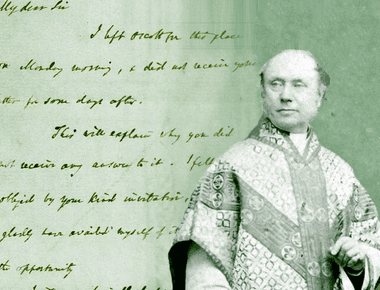 My dear Sir
I left Oscott for this place
on Monday morning, & did not receive your
for some days after.
This will explain why you did
not receive any answer to it. I felt
obliged by your kind invitation,
gladly have availed myself of it
the opportunity